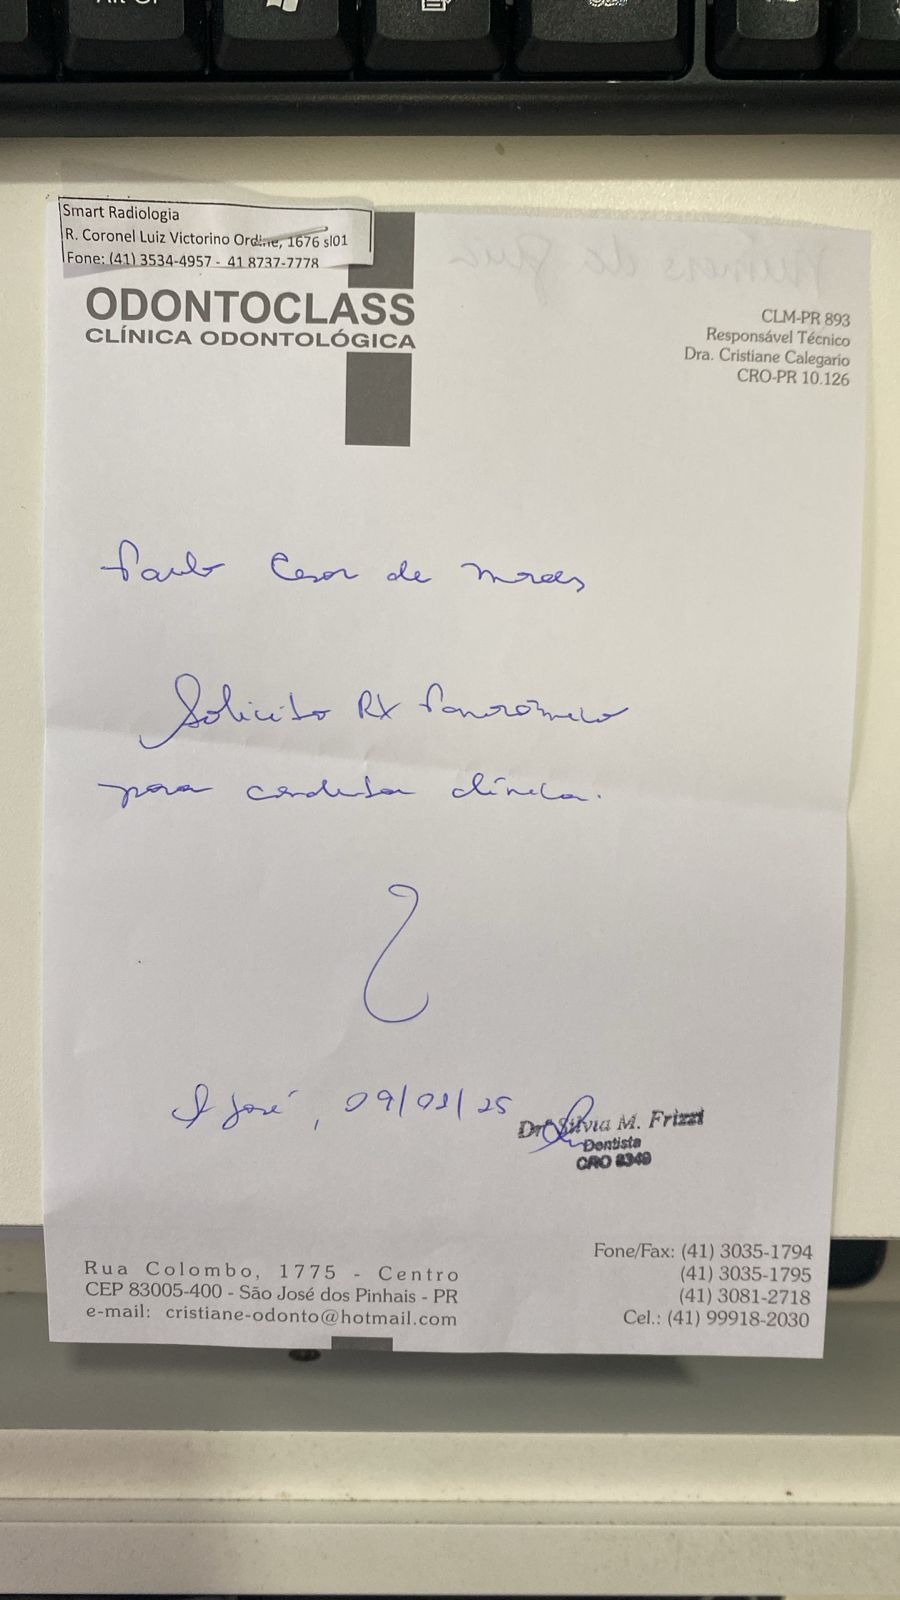 Smart Radiologia
R. Coronel Luiz Victorino Ordine, 1676 sl01
Fone: (41) 3534-4957 - 41 8737-7778
ODONTOCLASS
CLÍNICA ODONTOLÓGICA
CLM-PR 893
Responsável Técnico
Dra. Cristiane Calegario
CRO-PR 10.126
Paulo Cesar de Moraes
Solicito RX Panorâmico
para conduta clínica.
S José, 09/01/25
Drª Silvia M. Frizzi
Dentista
CRO 8349
Rua Colombo, 1775 - Centro
CEP 83005-400 - São José dos Pinhais - PR
e-mail: cristiane-odonto@hotmail.com
Fone/Fax: (41) 3035-1794
(41) 3035-1795
(41) 3081-2718
Cel.: (41) 99918-2030